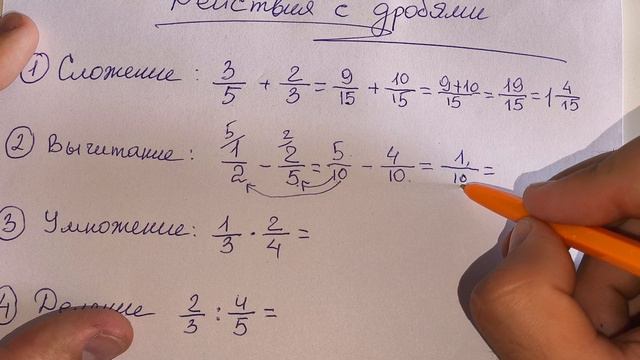 Действия с дробями
1 Сложение: 3/5 + 2/3 = 9/15 + 10/15 = 9+10/15 = 19/15 = 1 4/15
2 Вычитание: 5/ 1/2 - 2/ 2/5 = 5/10 - 4/10 = 1/10 =
3 Умножение: 1/3 · 2/4 =
4 Деление 2/3 : 4/5 =